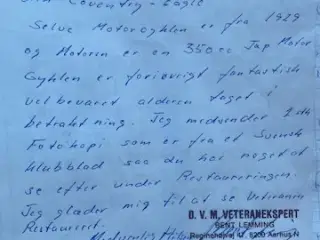 Coventry-Eagle
Selve Motorcyklen er fra 1929
og Motoren er en 350cc Jap Motor
Cyklen er forøvrigt fantastisk
velbevaret alderen taget i
betragtning. Jeg medsender 2 stk
Fotokopi som er fra et Svensk
klubblad saa du har noget at
se efter under Restaureringen.
Jeg glæder mig til at se Veteranen
Restaureret.
Med venlig Hilsen
D. V. M. VETERANEKSPERT
BENT LEMMING
8200 Aarhus N